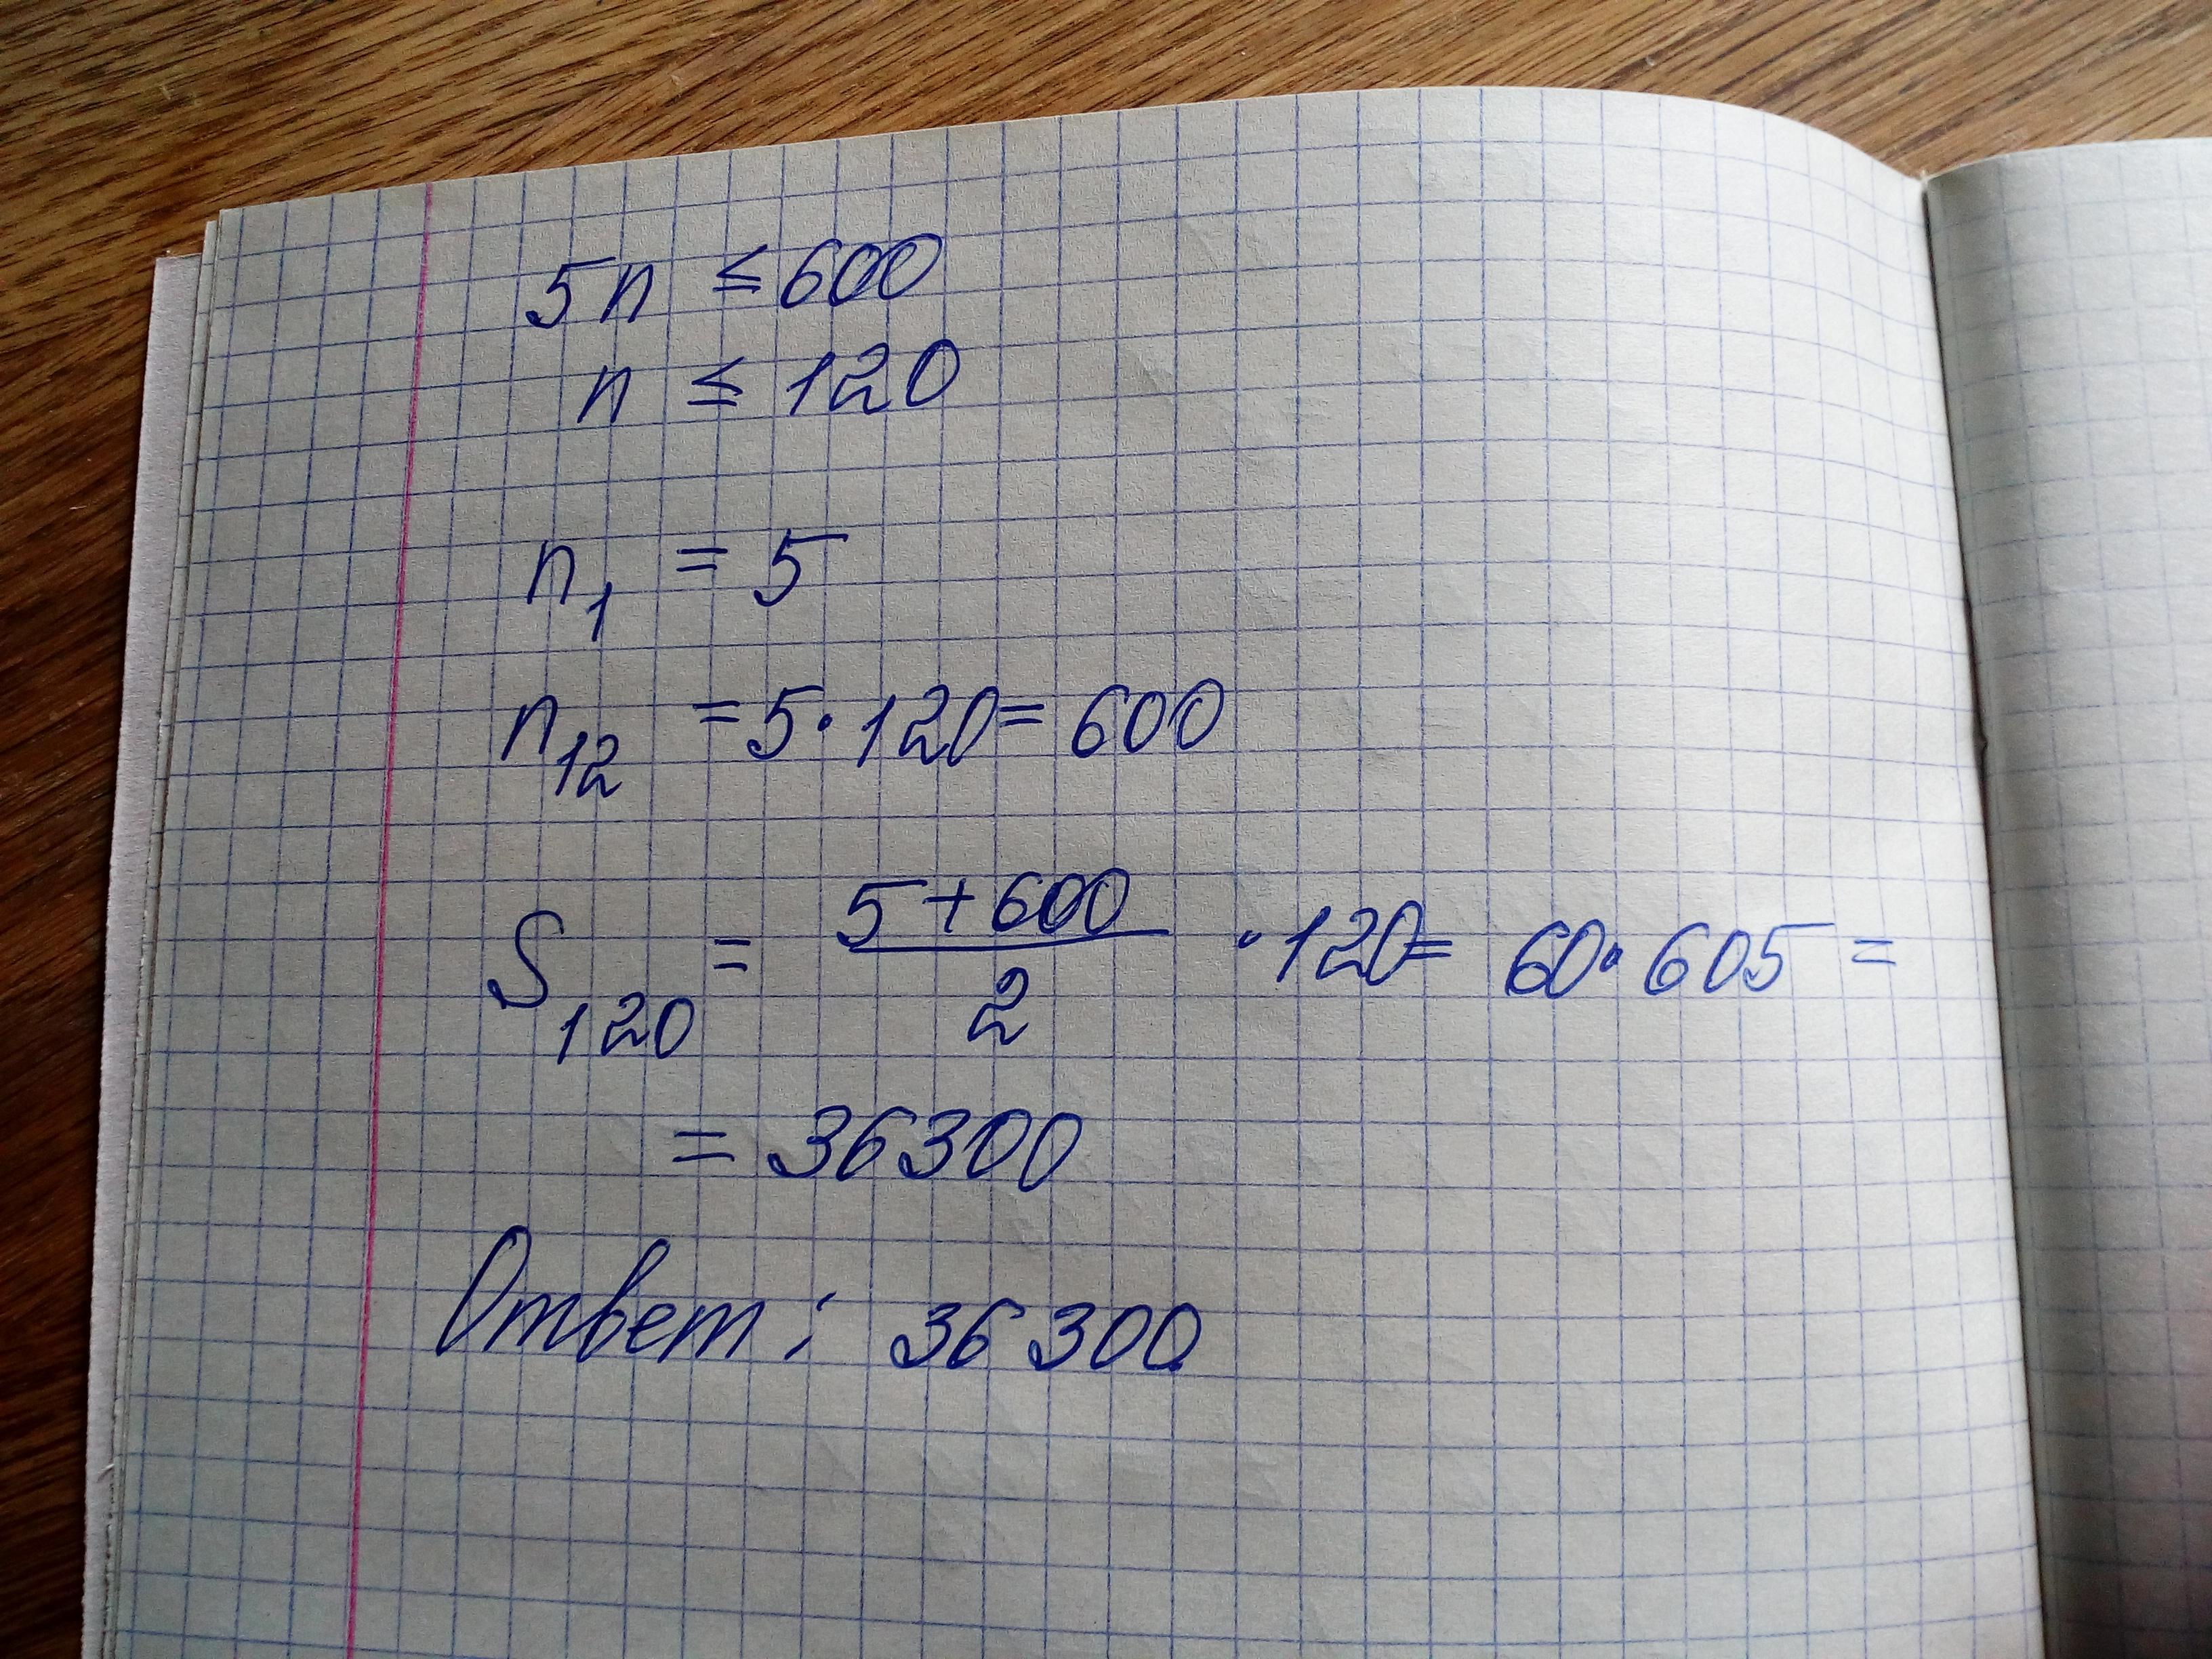 5n ≤ 600
n ≤ 120
n₁ = 5
n₁₂ = 5·120 = 600
S₁₂₀ = (5+600)/2 · 120 = 60·605 =
= 36300
Ответ: 36300